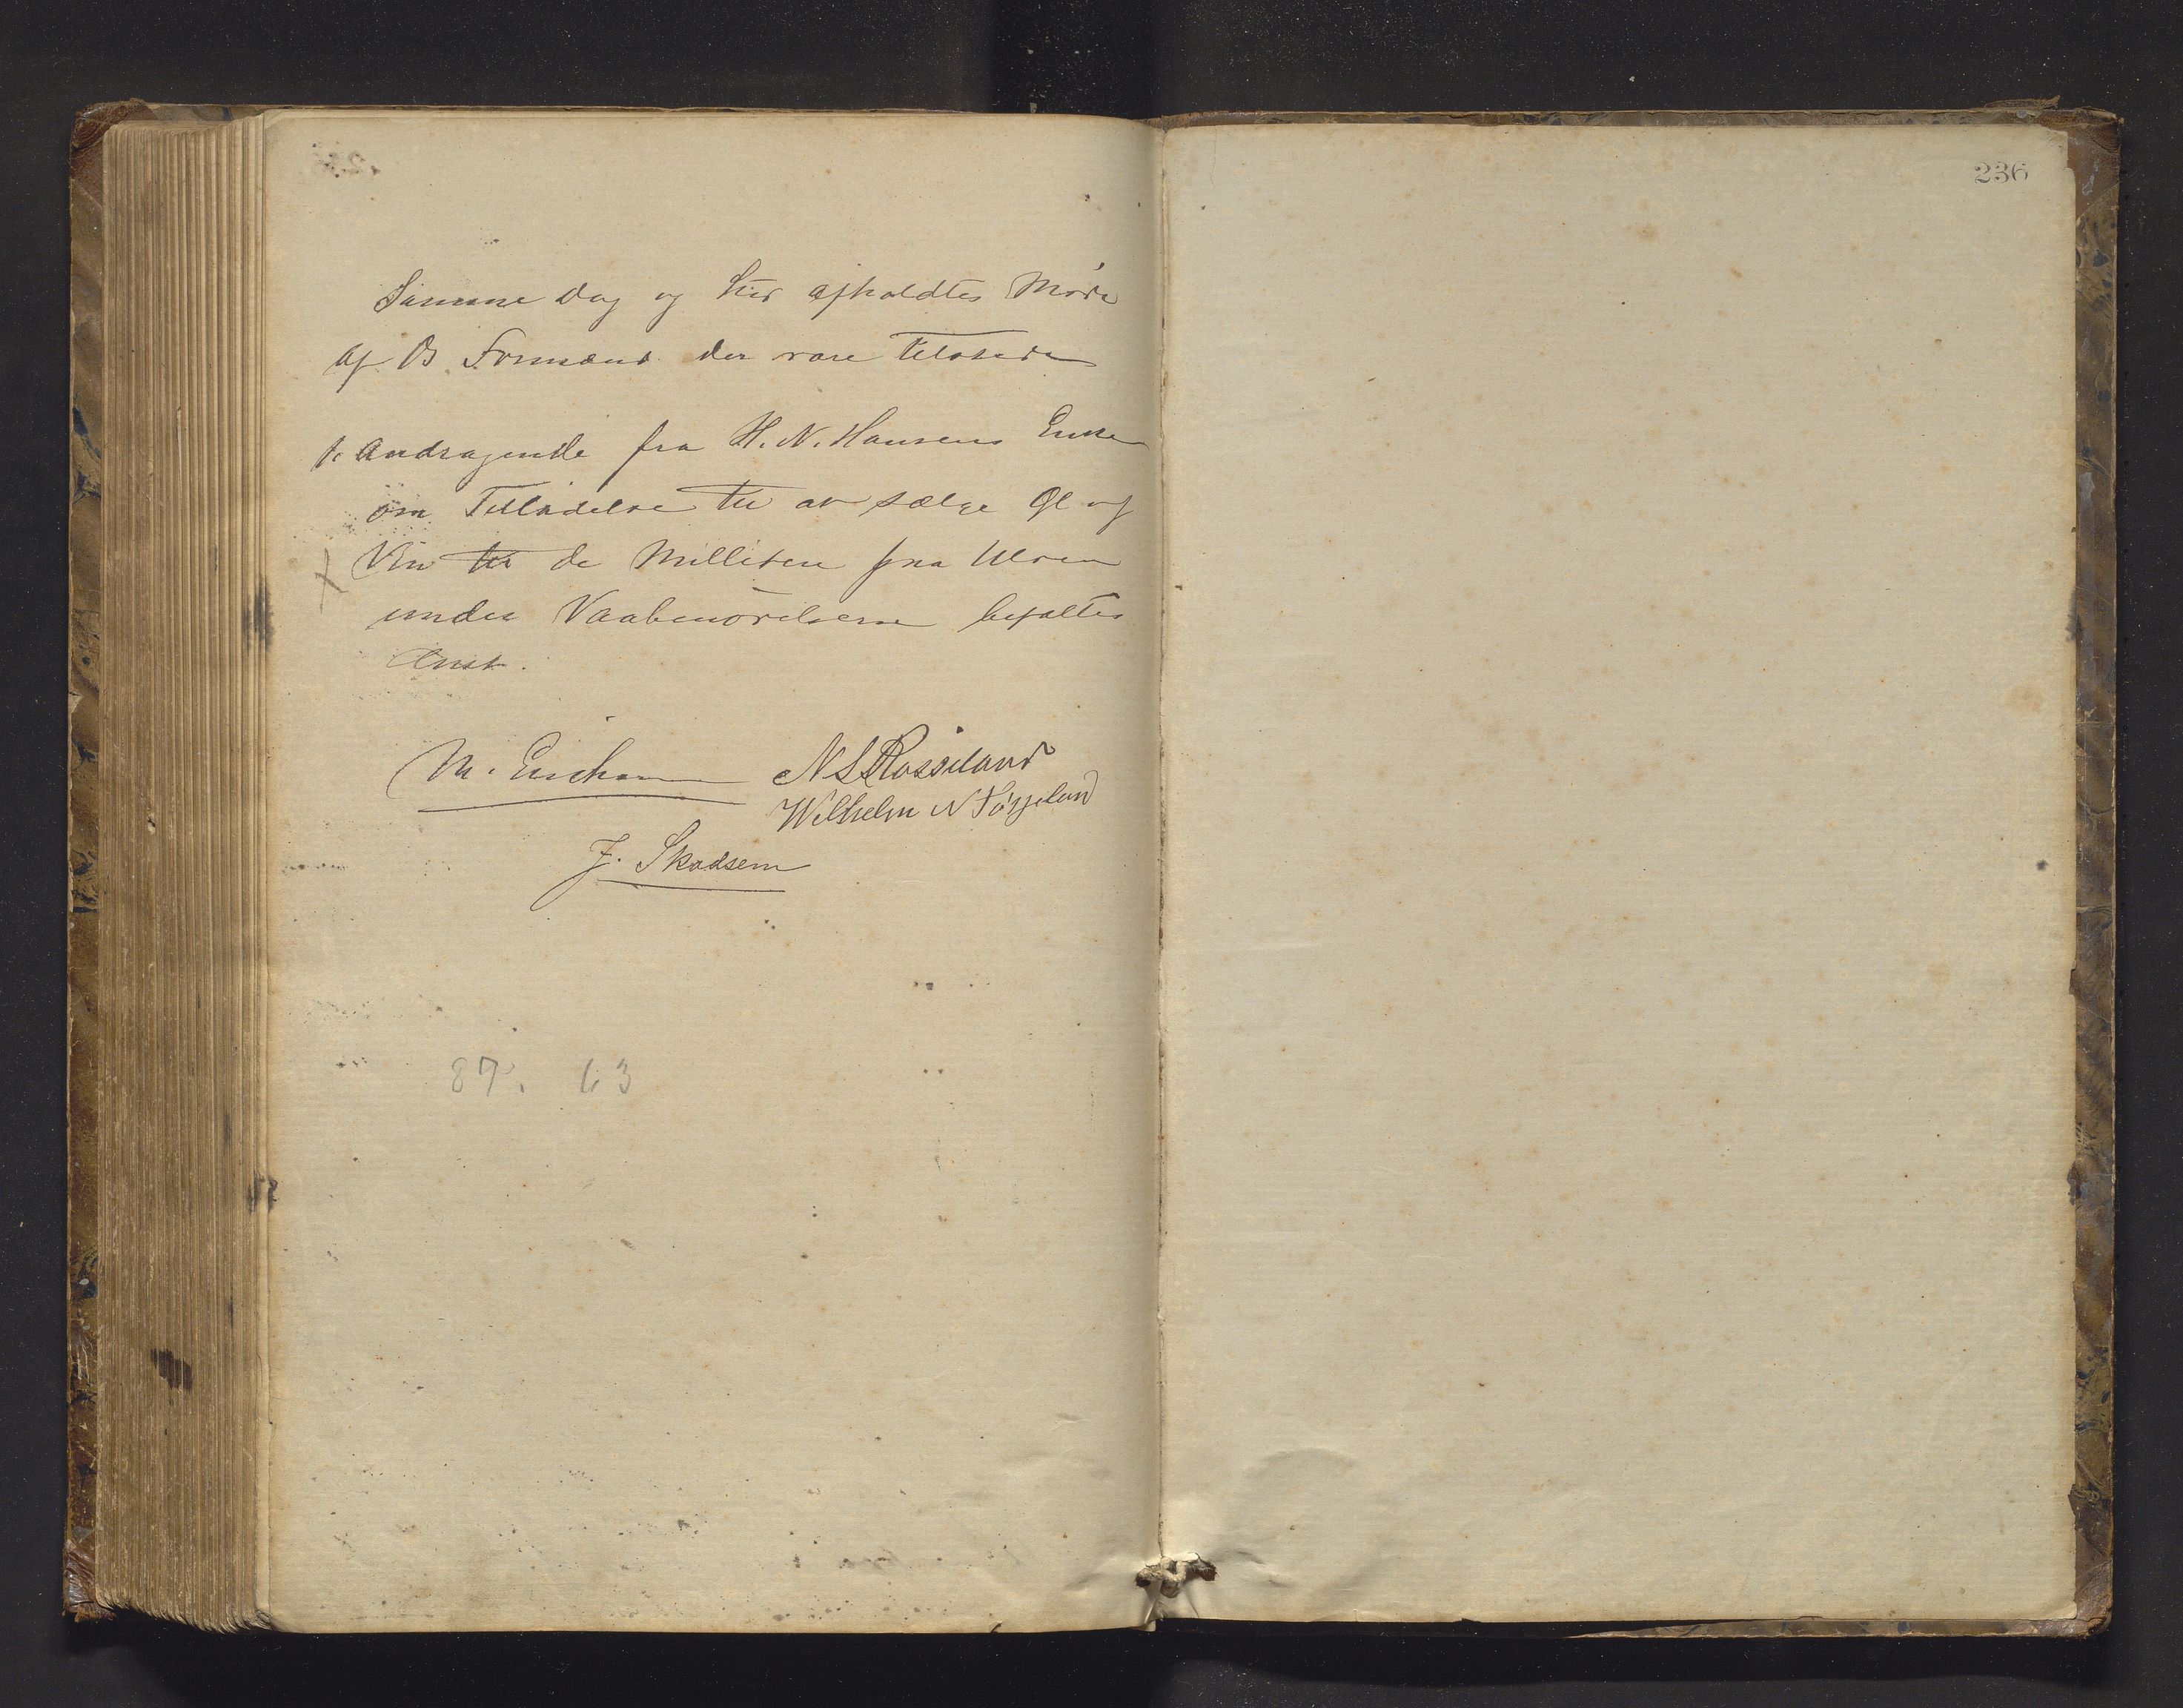 Samme Dag og Sted afholdtes Møde
af Os Formænd. der vare tilstede
1. Andragende fra H. N. Hansens Enke
om Tilladelse til at sælge Øl og
Vin til de Millitere fra Ulven
under Vaabenøvelserne
M. Erichsen N L Røsseland
Wilhelm N Søfteland
J. Skadsem
87. 63
236